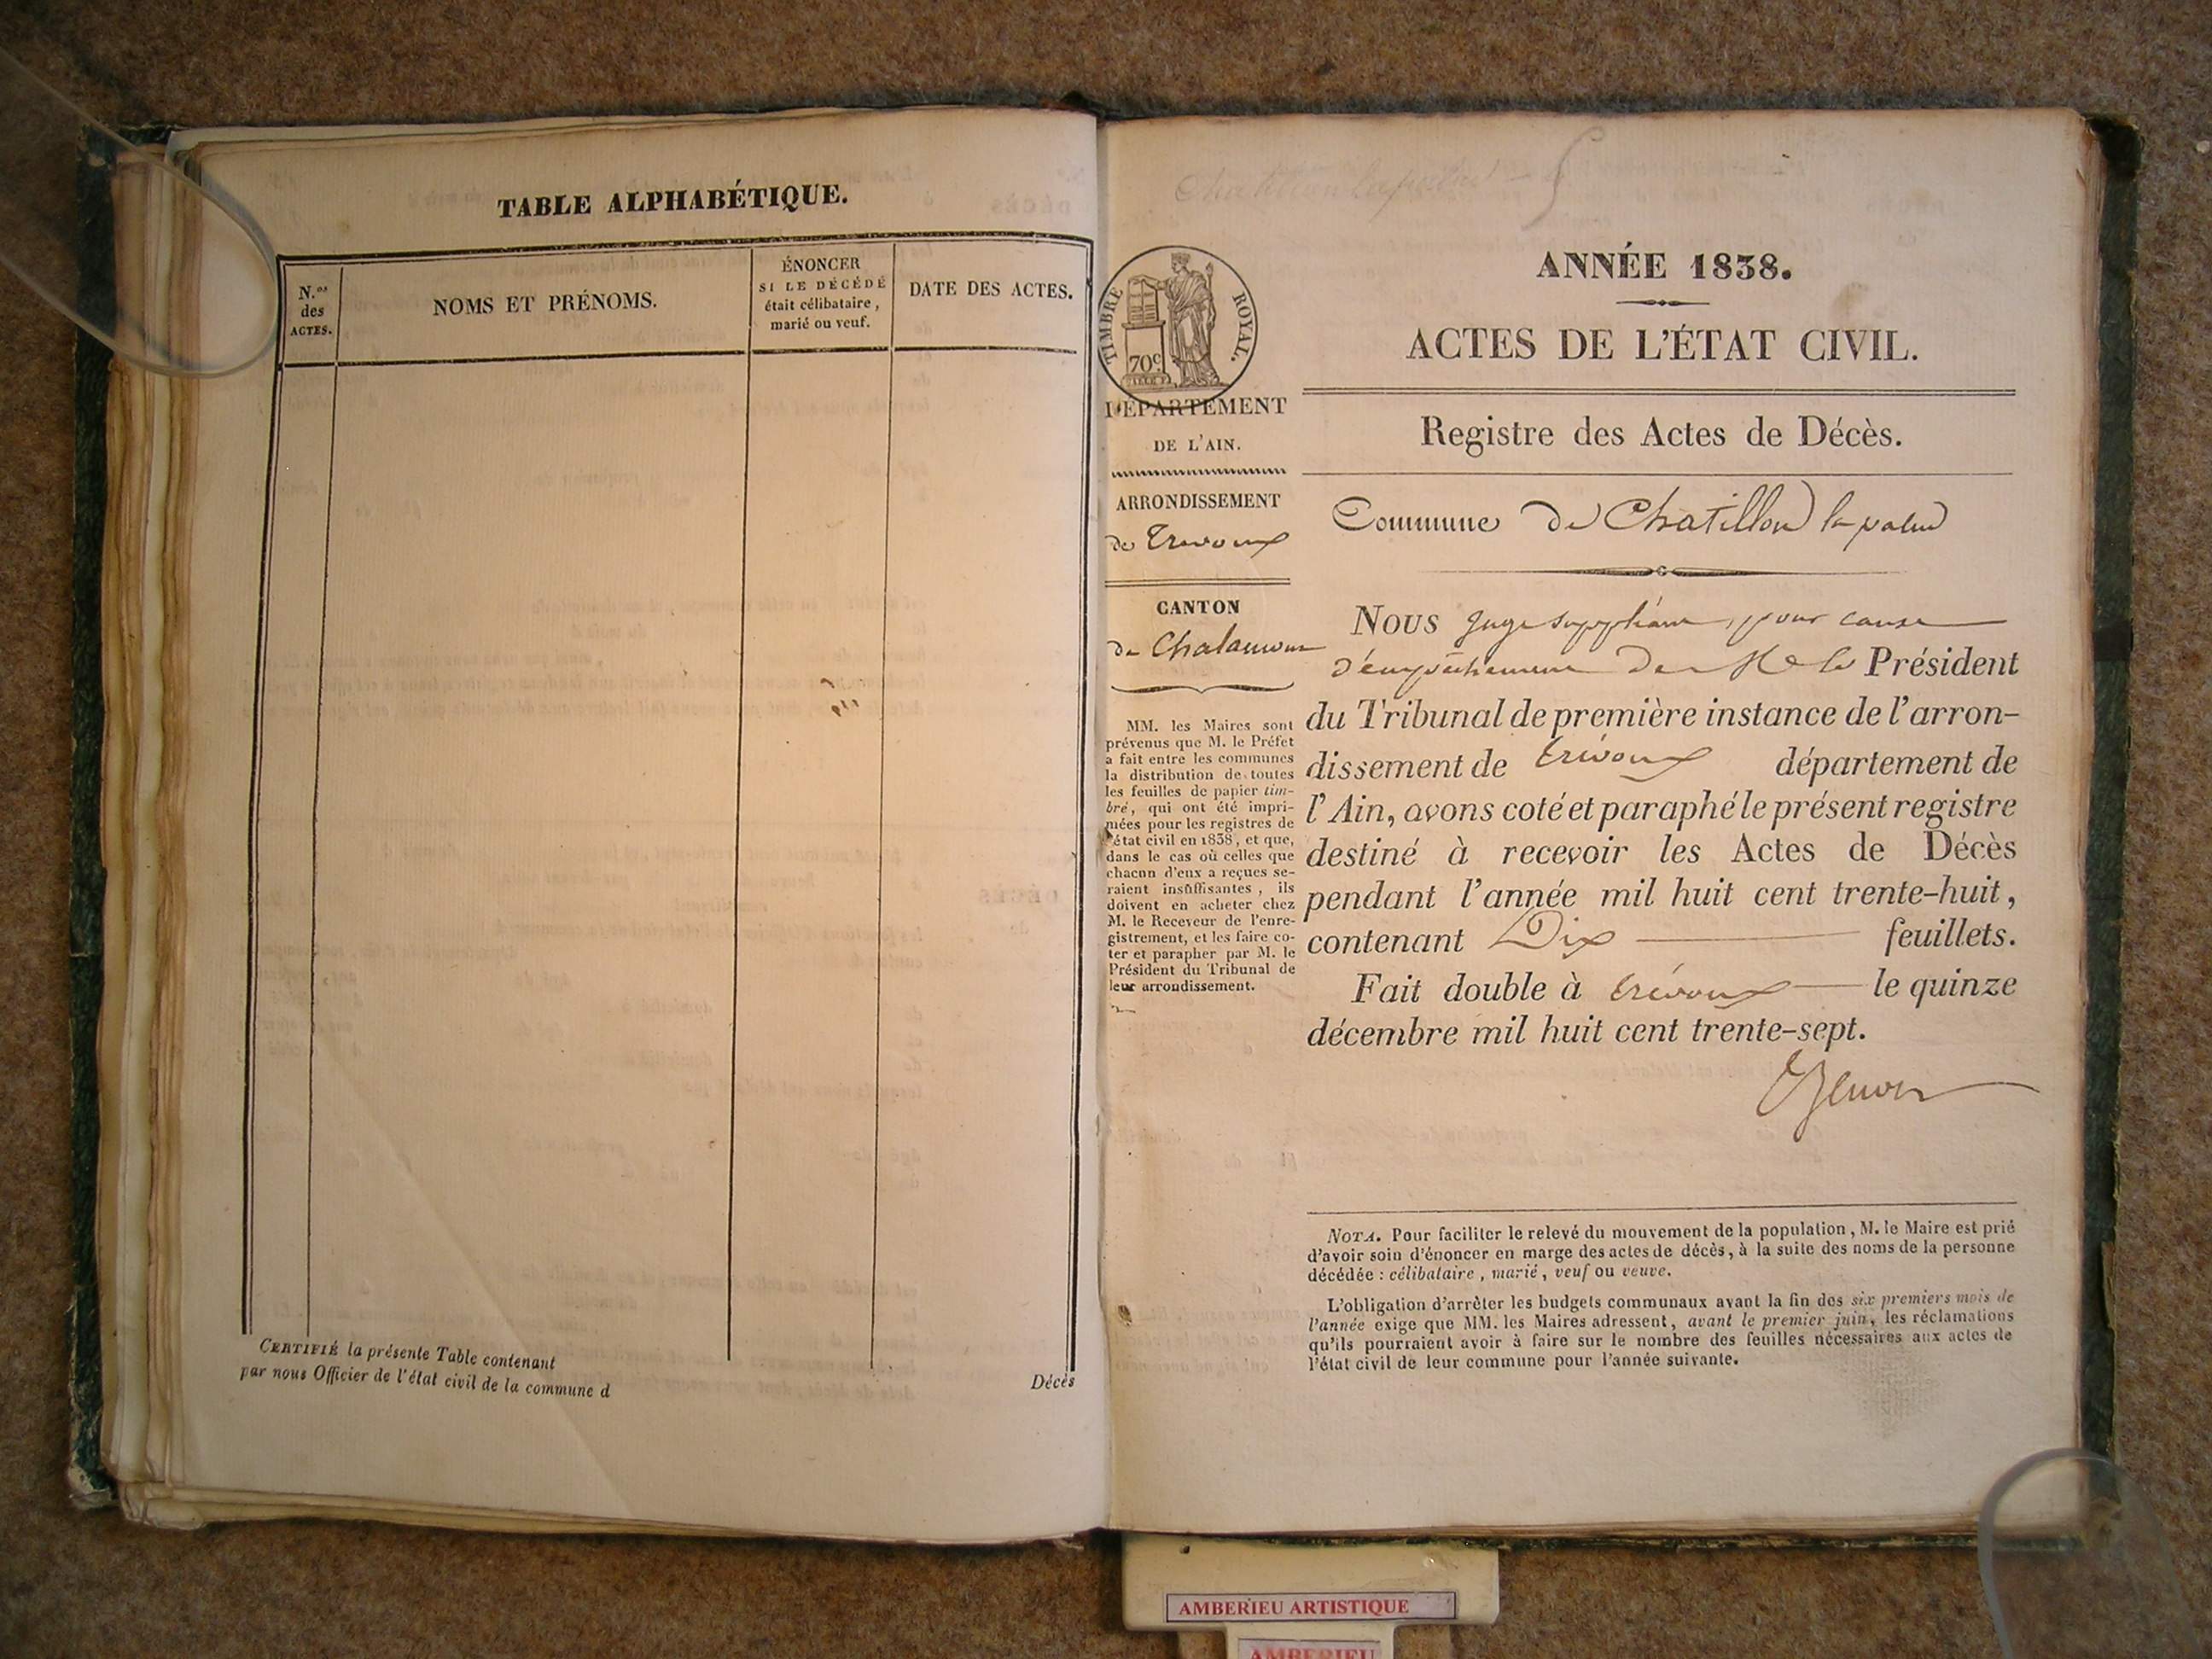 TABLE ALPHABÉTIQUE.
N.os
des
ACTES.
NOMS ET PRÉNOMS.
ÉNONCER
SI LE DÉCÉDÉ
était célibataire,
marié ou veuf.
DATE DES ACTES.
CERTIFIÉ la présente Table contenant
Décès
par nous Officier de l'état civil de la commune d
TIMBRE ROYAL.
70c
DÉPARTEMENT
DE L'AIN.
ARRONDISSEMENT
de Trevoux
CANTON
de Chalamont
MM. les Maires sont
prévenus que M. le Préfet
a fait entre les communes
la distribution de toutes
les feuilles de papier tim-
bré, qui ont été impri-
mées pour les registres de
l'état civil en 1838, et que,
dans le cas où celles que
chacun d'eux a reçues se-
raient insuffisantes, ils
doivent en acheter chez
M. le Receveur de l'enre-
gistrement, et les faire co-
ter et parapher par M. le
Président du Tribunal de
leur arrondissement.
Chatillon la palud
ANNÉE 1838.
ACTES DE L'ÉTAT CIVIL.
Registre des Actes de Décès.
Commune de Chatillon la palud
Nous juge suppléant, pour cause
d'empêchement de M. le Président
du Tribunal de première instance de l'arron-
dissement de trévoux département de
l'Ain, avons coté et paraphé le présent registre
destiné à recevoir les Actes de Décès
pendant l'année mil huit cent trente-huit,
contenant Dix feuillets.
Fait double à trévoux le quinze
décembre mil huit cent trente-sept.
NOTA. Pour faciliter le relevé du mouvement de la population, M. le Maire est prié
d'avoir soin d'énoncer en marge des actes de décès, à la suite des noms de la personne
décédée : célibataire, marié, veuf ou veuve.
L'obligation d'arrêter les budgets communaux avant la fin des six premiers mois de
l'année exige que MM. les Maires adressent, avant le premier juin, les réclamations
qu'ils pourraient avoir à faire sur le nombre des feuilles nécessaires aux actes de
l'état civil de leur commune pour l'année suivante.
AMBERIEU ARTISTIQUE
AMBERIEU